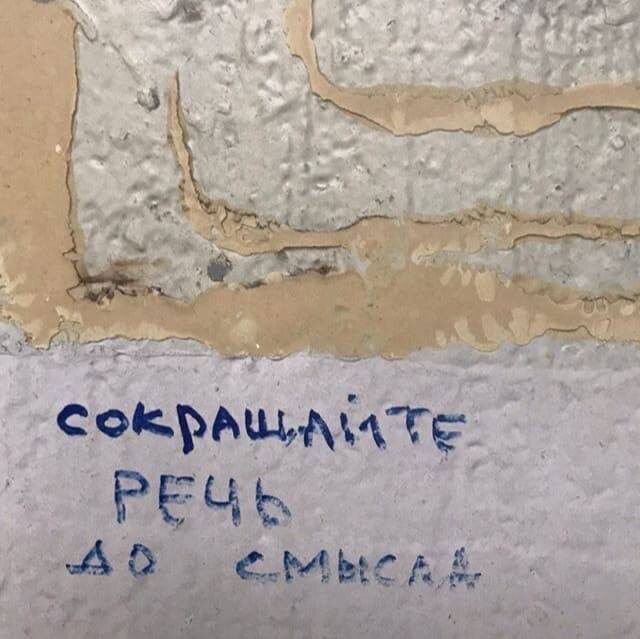 СОКРАЩАЙТЕ
РЕЧЬ
ДО СМЫСЛА